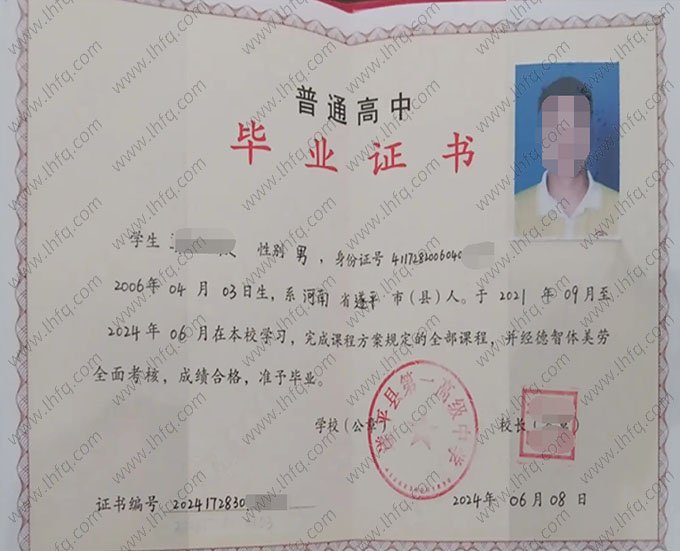 普通高中
毕业证书
学生 性别 男，身份证号 4117282006040
2006年 04月 03日生，系 河南 省遂平 市（县）人。于 2021 年 09月至
2024年 06月在本校学习，完成课程方案规定的全部课程，并经德智体美劳
全面考核，成绩合格，准予毕业。
学校（公章） 校长（
遂平县第一高级中学
证书编号 2024172830 2024年 06月 08日
www.lhfq.com